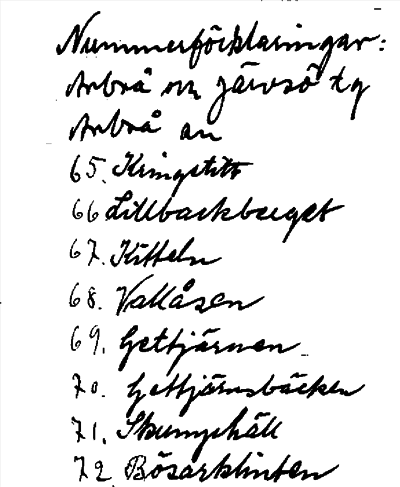 Nummerförklaringar:
Arbrå och Järvsö tg
Arbrå sn
65. Kringstitt
66 Lillbackberget
67. Kitteln
68. Vallåsen
69. Gettjärnen
70. Gettjärnsbäcken
71. Skumphäll
72. Bösarklinten